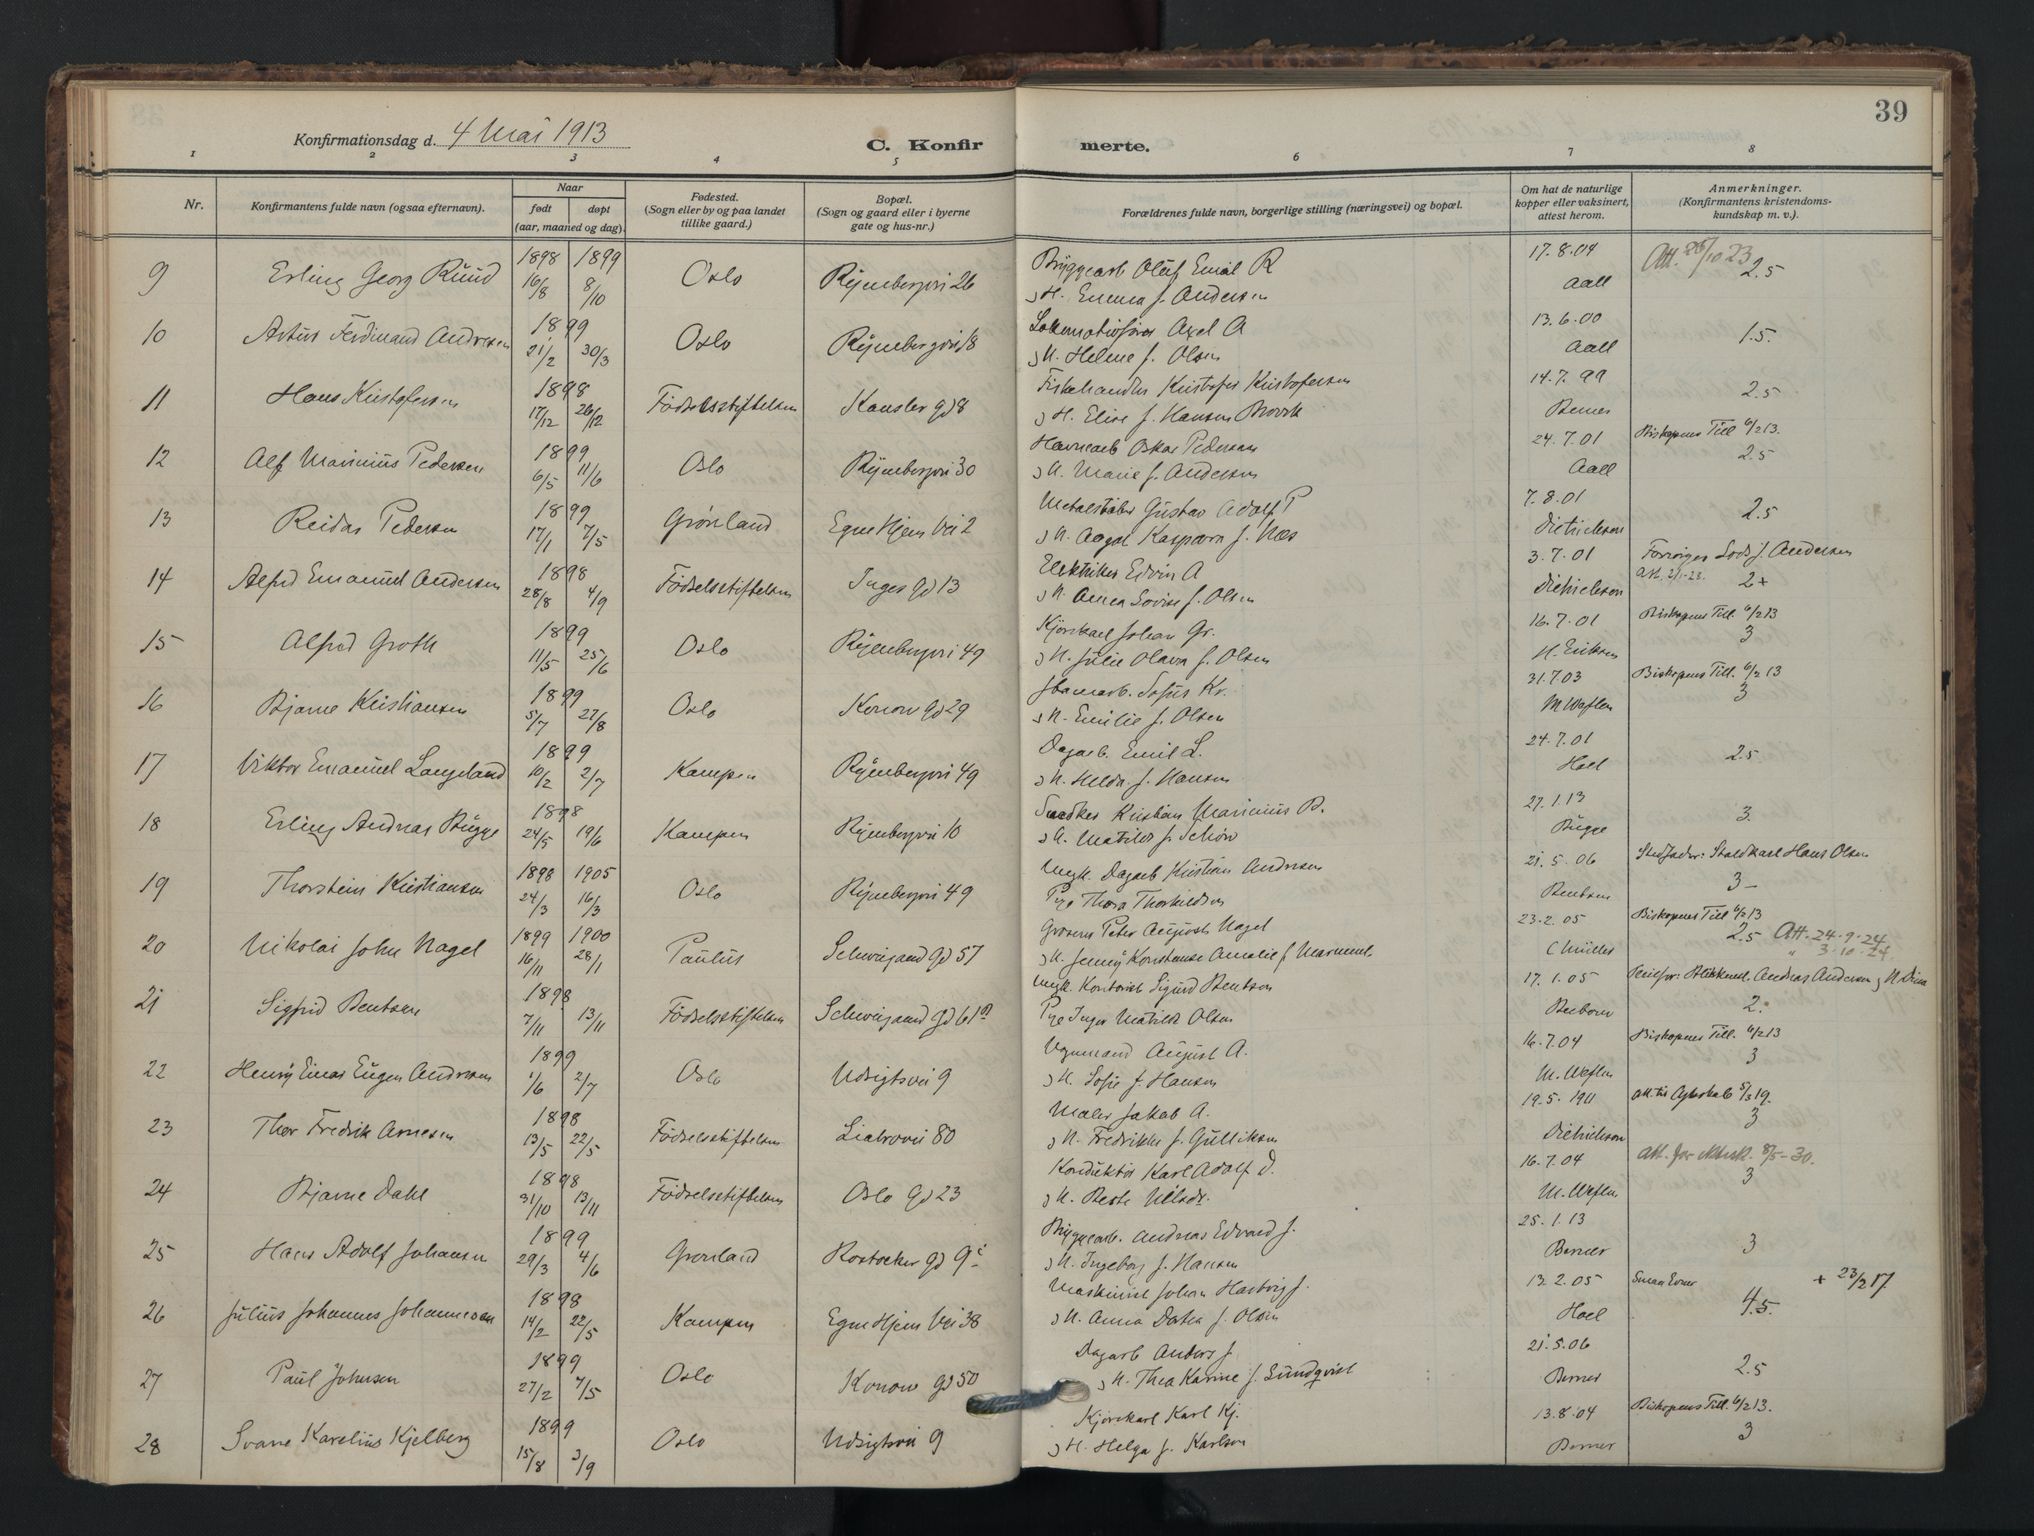 39
Konfirmationsdag d. 4 Mai 1913
C. Konfir merte.
1 2 3 4 5 6 7 8
Nr.
Konfirmantens fulde navn (ogsaa efternavn).
Naar
født døpt
(aar, maaned og dag).
Fødested.
(Sogn eller by og paa landet
tillike gaard.)
Bopæl.
(Sogn og gaard eller i byerne
gate og hus-nr.)
Forældrenes fulde navn, borgerlige stilling (næringsvei) og bopæl.
Om hat de naturlige
kopper eller vaksinert,
attest herom.
Anmerkninger.
(Konfirmantens kristendoms-
kundskap m. v.).
9 Erling Georg Ruud 1898 16/8 1899 8/10 Oslo Ryenbergvei 26 Bryggearb Oluf Emil R 17.8.04 Att. 26/10 23
o H. Emma f. Andersen Aall 2.5
10 Artur Ferdinand Andresen 1899 21/2 30/3 Oslo Ryenbergvei 18 Lokomotivfører Axel A 13.6.00
o H. Helene f. Olsen Aall 1.5.
11 Hans Kristofersen 1898 17/12 26/12 Födselsstiftelsen Kansler gd 8 Fiskehandler Kristofer Kristofersen 14.7.99
o H. Elise f. Hansen Berner 2.5
12 Alf Marinius Pedersen 1899 6/5 11/6 Oslo Ryenbergvei 30 Havnearb Oskar Pedersen 24.7.01 Biskopens Till 6/2 13.
o H. Marie f. Andersen Aall 2.5
13 Reidar Pedersen 1899 17/1 7/5 Grønland Egne Hjem Vei 2 Gustav Adolf P 7.8.01
o H. Aagot f. Næs Dietrichson 2.5
14 Alfred Emanuel Andersen 1898 28/8 4/9 Födselsstiftelsen Inges gd 13 Elektriker Edvin A 3.7.01 Andersen
o H. Anna Lovise f. Olsen Dietrichson 2+
15 Alfred Groth 1899 11/5 25/6 Oslo Ryenbergvei 49 Kjørekarl Johan Gr. 16.7.01 Biskopens Till. 6/2 13
o H. Julie Olava f. Olsen H. Eriksen 3
16 Bjarne Kristiansen 1899 5/7 27/8 Oslo Konow gd 29 Sofus Kr. 31.7.03 Biskopens Till. 6/2 13
o H. Emilie f. Olsen 3
17 Viktor Emanuel Langeland 1899 10/2 2/7 Kampen Ryenbergvei 49 Dagarb. Emil L. 24.7.01
o H. Hilda f. Hansen Hoel 2.5
18 Erling Andreas Bugge 1898 24/5 19/6 Kampen Ryenbergvei 10 Snedker Kristian Marinius B. 27.1.13
o H. Matilde f. Bugge 3.
19 Thorstein Kristiansen 1898 24/3 1905 16/3 Oslo Ryenbergvei 49 Ungk. Dagarb Kristian Andresen 21.5.06 Stedfader: Staldkarl Hans Olsen
Pige Thora Thorkildsen Bentsen 3-
20 Nikolai John Nagel 1899 16/11 1900 28/1 Paulus Schweigaard gd 57 Peter August Nagel 23.2.05 Biskopens Till 6/2 13
2.5 Att. 24.9.24
" 3.10.24
21 Sigfrid Bentsen 1898 7/11 13/11 Födselsstiftelsen Schweigaard gd 61 Ungk. Kontorist Sigurd Bentsen 17.1.05 Andreas Andersen
Pige Inga Matilde Olsen 2.
22 Henry Einar Eugen Andresen 1899 1/6 2/7 Oslo Udsigtsvei 9 Vognmand August A. 16.7.04 Biskopens Till. 6/2 13
o H. Sofie f. Hansen 3
23 Thor Fredrik Arnesen 1898 13/5 22/5 Födselsstiftelsen Liabrovei 80 Maler Jakob A. 19.5.1911
o H. Fredrikke f. Gulliksen Dietrichson 3
24 Bjarne Dahl 1898 31/10 13/11 Födselsstiftelsen Oslo gd 23 Konduktör Karl Adolf D. 16.7.04 Att. for 8/5-30.
3
25 Hans Adolf Johansen 1899 29/3 4/6 Grønland Rostocker gd 9 Bryggearb. Andreas Edvard J. 25.1.13
o H. Ingeborg f. Hansen Berner 3
26 Julius Johannes Johannesen 1898 14/2 22/5 Kampen Egne Hjem Vei 38 Maskinist Johan Hartvig J. 13.2.05 Smaa Evner + 23/2 17
o H. Anna f. Olsen Hoel 4.5.
27 Paul Johnsen 1899 27/2 7/5 Oslo Konow gd 50 Dagarb Anders J. 21.5.06
o H. Thea Karine f. Lundqvist Berner 2.5
28 Svane Karelius Kjelberg 1899 15/8 3/9 Oslo Udsigtsvei 9 Kjørekarl Karl Kj. 13.8.04 Biskopens Till. 6/2 13.
o H. Helga f. Karlson Berner 3